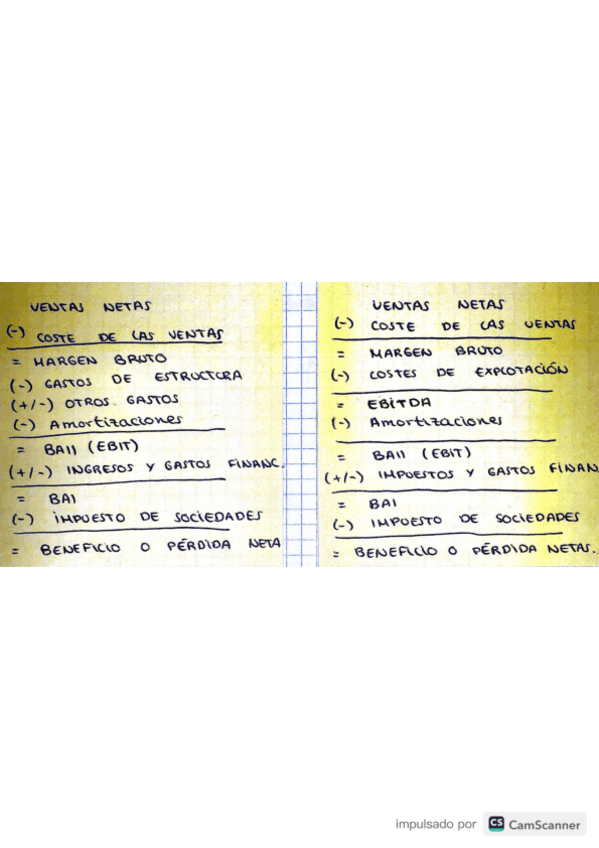 VENTAS NETAS
(-) COSTE DE LAS VENTAS
= MARGEN BRUTO
(-) GASTOS DE ESTRUCTURA
(+/-) OTROS GASTOS
(-) Amortizaciones
= BAII (EBIT)
(+/-) INGRESOS Y GASTOS FINANC.
= BAI
(-) IMPUESTO DE SOCIEDADES
= BENEFICIO O PÉRDIDA NETA
VENTAS NETAS
(-) COSTE DE LAS VENTAS
= MARGEN BRUTO
(-) COSTES DE EXPLOTACIÓN
= EBITDA
(-) Amortizaciones
= BAII (EBIT)
(+/-) IMPUESTOS Y GASTOS FINAN
= BAI
(-) IMPUESTO DE SOCIEDADES
= BENEFICIO O PÉRDIDA NETAS.
impulsado por CS CamScanner